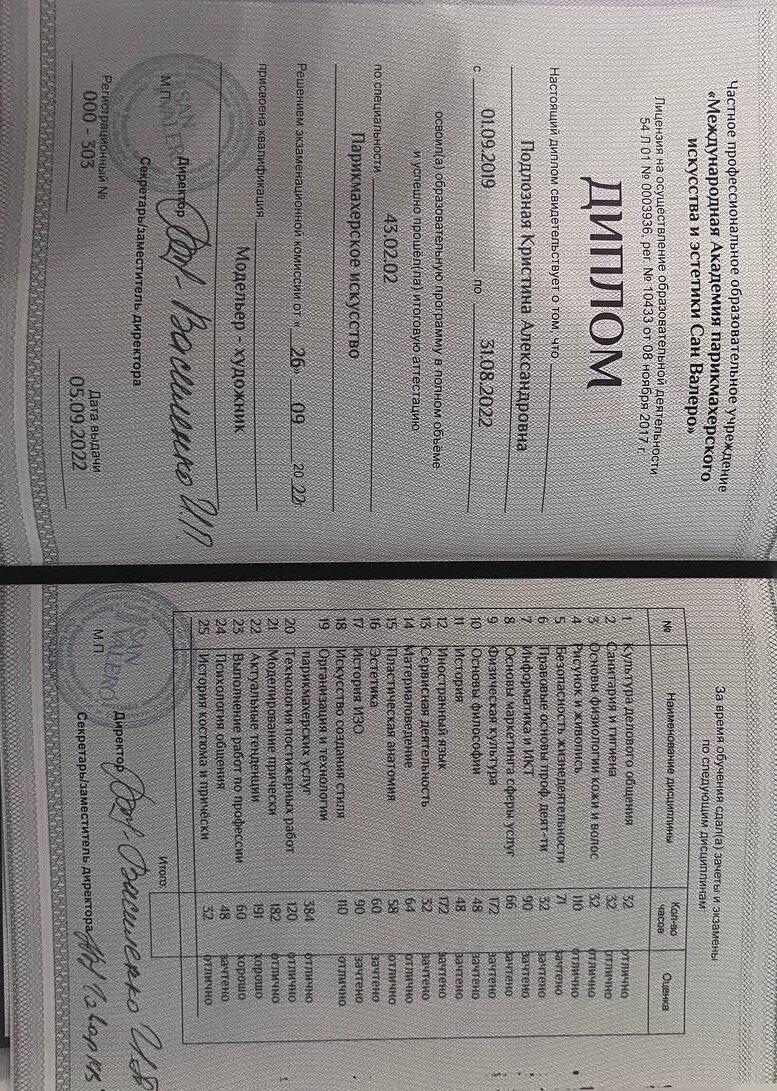 Частное профессиональное образовательное учреждение
«Международная Академия парикмахерского
искусства и эстетики Сан Валеро»
Лицензия на осуществление образовательной деятельности
54 Л 01 № 0003936, рег. № 10433 от 08 ноября 2017 г.
ДИПЛОМ
Настоящий диплом свидетельствует о том, что
Подлозная Кристина Александровна
с 01.09.2019 по 31.08.2022
освоил(а) образовательную программу в полном объёме
и успешно прошёл(ла) итоговую аттестацию
по специальности 43.02.02
Парикмахерское искусство
Решением экзаменационной комиссии от « 26 09 20 22
присвоена квалификация
Модельер - художник
Директор Василенко И.П.
М.П.
SAN VALERO
Секретарь/заместитель директора
Регистрационный №
000 - 303
Дата выдачи
05.09.2022
За время обучения сдал(а) зачеты и экзамены
по следующим дисциплинам
№ Наименование дисциплины Кол-во часов Оценка
1 Культура делового общения 32 отлично
2 Санитария и гигиена 32 отлично
3 Основы физиологии кожи и волос 32 отлично
4 Рисунок и живопись 110 отлично
5 Безопасность жизнедеятельности 71 зачтено
6 Правовые основы проф. деят-ти 32 зачтено
7 Информатика и ИКТ 90 зачтено
8 Основы маркетинга сферы услуг 66 зачтено
9 Физическая культура 172 зачтено
10 Основы философии 48 зачтено
11 История 48 зачтено
12 Иностранный язык 172 зачтено
13 Сервисная деятельность 32 зачтено
14 Материаловедение 64 отлично
15 Пластическая анатомия 58 отлично
16 Эстетика 60 зачтено
17 История ИЗО 90 зачтено
18 Искусство создания стиля 110 отлично
19 Организация и технологии
парикмахерских услуг 384 отлично
20 Технология постижерных работ 120 отлично
21 Моделирование прически 182 отлично
22 Актуальные тенденции 191 хорошо
23 Выполнение работ по профессии 60 хорошо
24 Психология общения 48 зачтено
25 История костюма и причёски 32 отлично
Итого:
Директор Василенко И.П.
М.П
SAN VALERO
Секретарь/заместитель директора